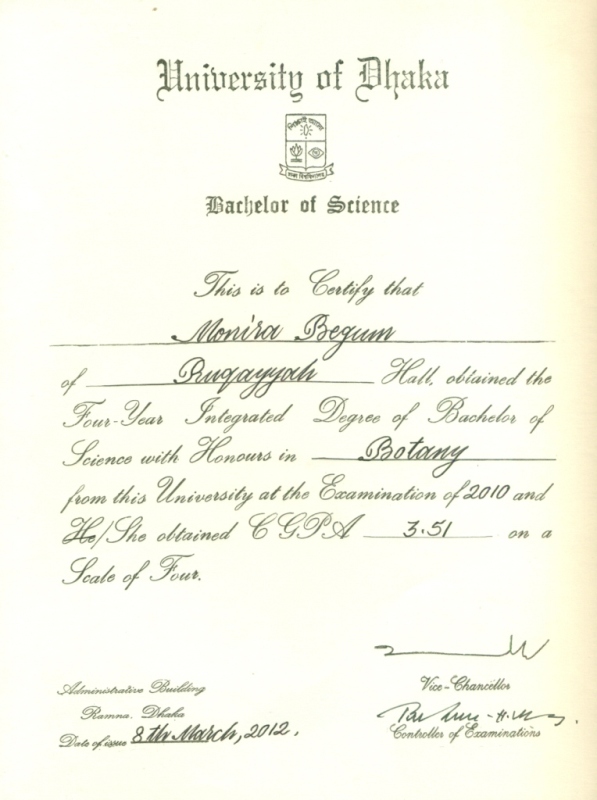 University of Dhaka
শিক্ষাই আলো
ঢাকা বিশ্ববিদ্যালয়
Bachelor of Science
This is to Certify that
Monira Begum
of Ruqayyah Hall, obtained the
Four-Year Integrated Degree of Bachelor of
Science with Honours in Botany
from this University at the Examination of 2010 and
He/She obtained CGPA 3.51 on a
Scale of Four.
Administrative Building
Ramna, Dhaka
Date of issue 8th March, 2012.
Vice-Chancellor
Controller of Examinations